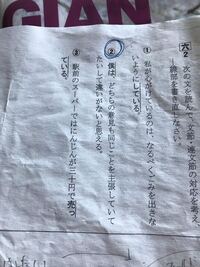 GIAN
六2 次の文を読んで、文節・連文節の対応を考え、
―線部を書き直しなさい。
① 私が心がけているのは、なるべくごみを出さな
いようにしている。
② 僕は、どちらの意見も同じことを主張していて
たいして違いがないと思える。
③ 駅前のスーパーではにんじんが三十円で売っ
ている。